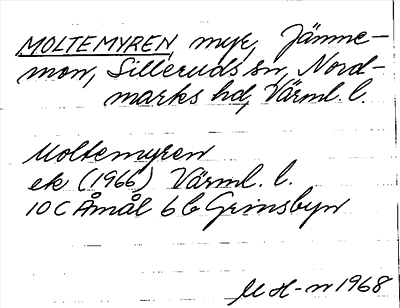 MOLTEMYREN, myr, Jämne-
mon, Silleruds sn, Nord-
marks hd, Värml. l.
Moltemyren
ek (1966) Värml. l.
10 C Åmål 6 b Grinsbyn
M H-n 1968